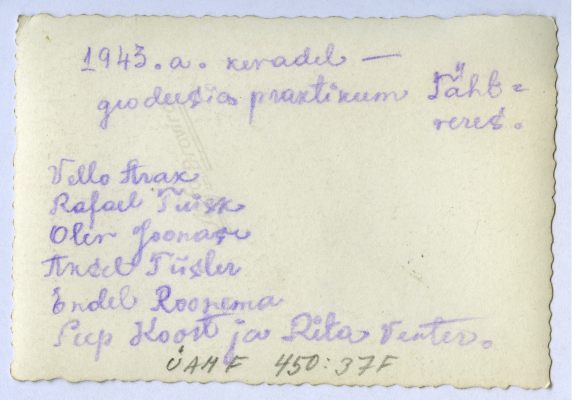 1943. a. kevadel —
geodeesia praktikum Täht=
veres.
Vello Arak
Rafael Tuisk
Olev Joonase
Ansel Tüsler
Endel Roopema
Peep Koort ja Rita Venter.
ÜAM F 450:37F